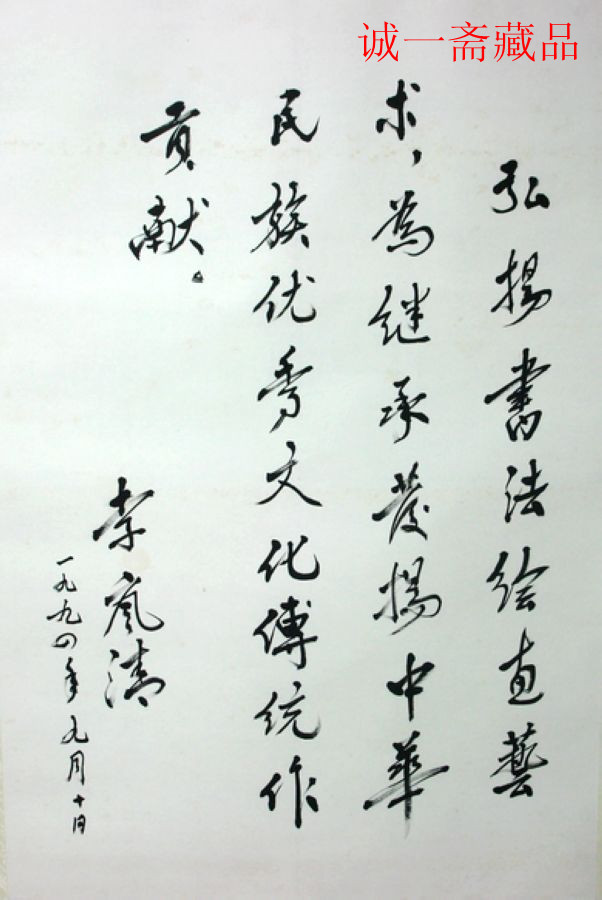 诚一斋藏品
弘揚書法绘画藝
术，為继承發揚中華
民族优秀文化傳统作
贡献。
李岚清
一九九四年九月十日